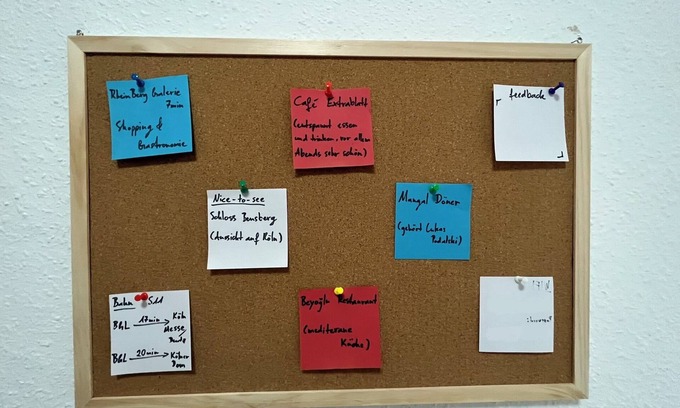 RheinBerg Galerie
7min
Shopping &
Gastronomie
Café Extrablatt
(entspannt essen
und trinken, vor allem
Abends sehr schön)
feedback
Nice-to-see
Schloss Bensberg
(Aussicht auf Köln)
Mangal Döner
(gehört Lukas
Podolski)
Bahn S11
BGL 17min Köln
Messe/
Deutz
BGL 20min Kölner
Dom
Beyoğlu Restaurant
(mediterane
Küche)